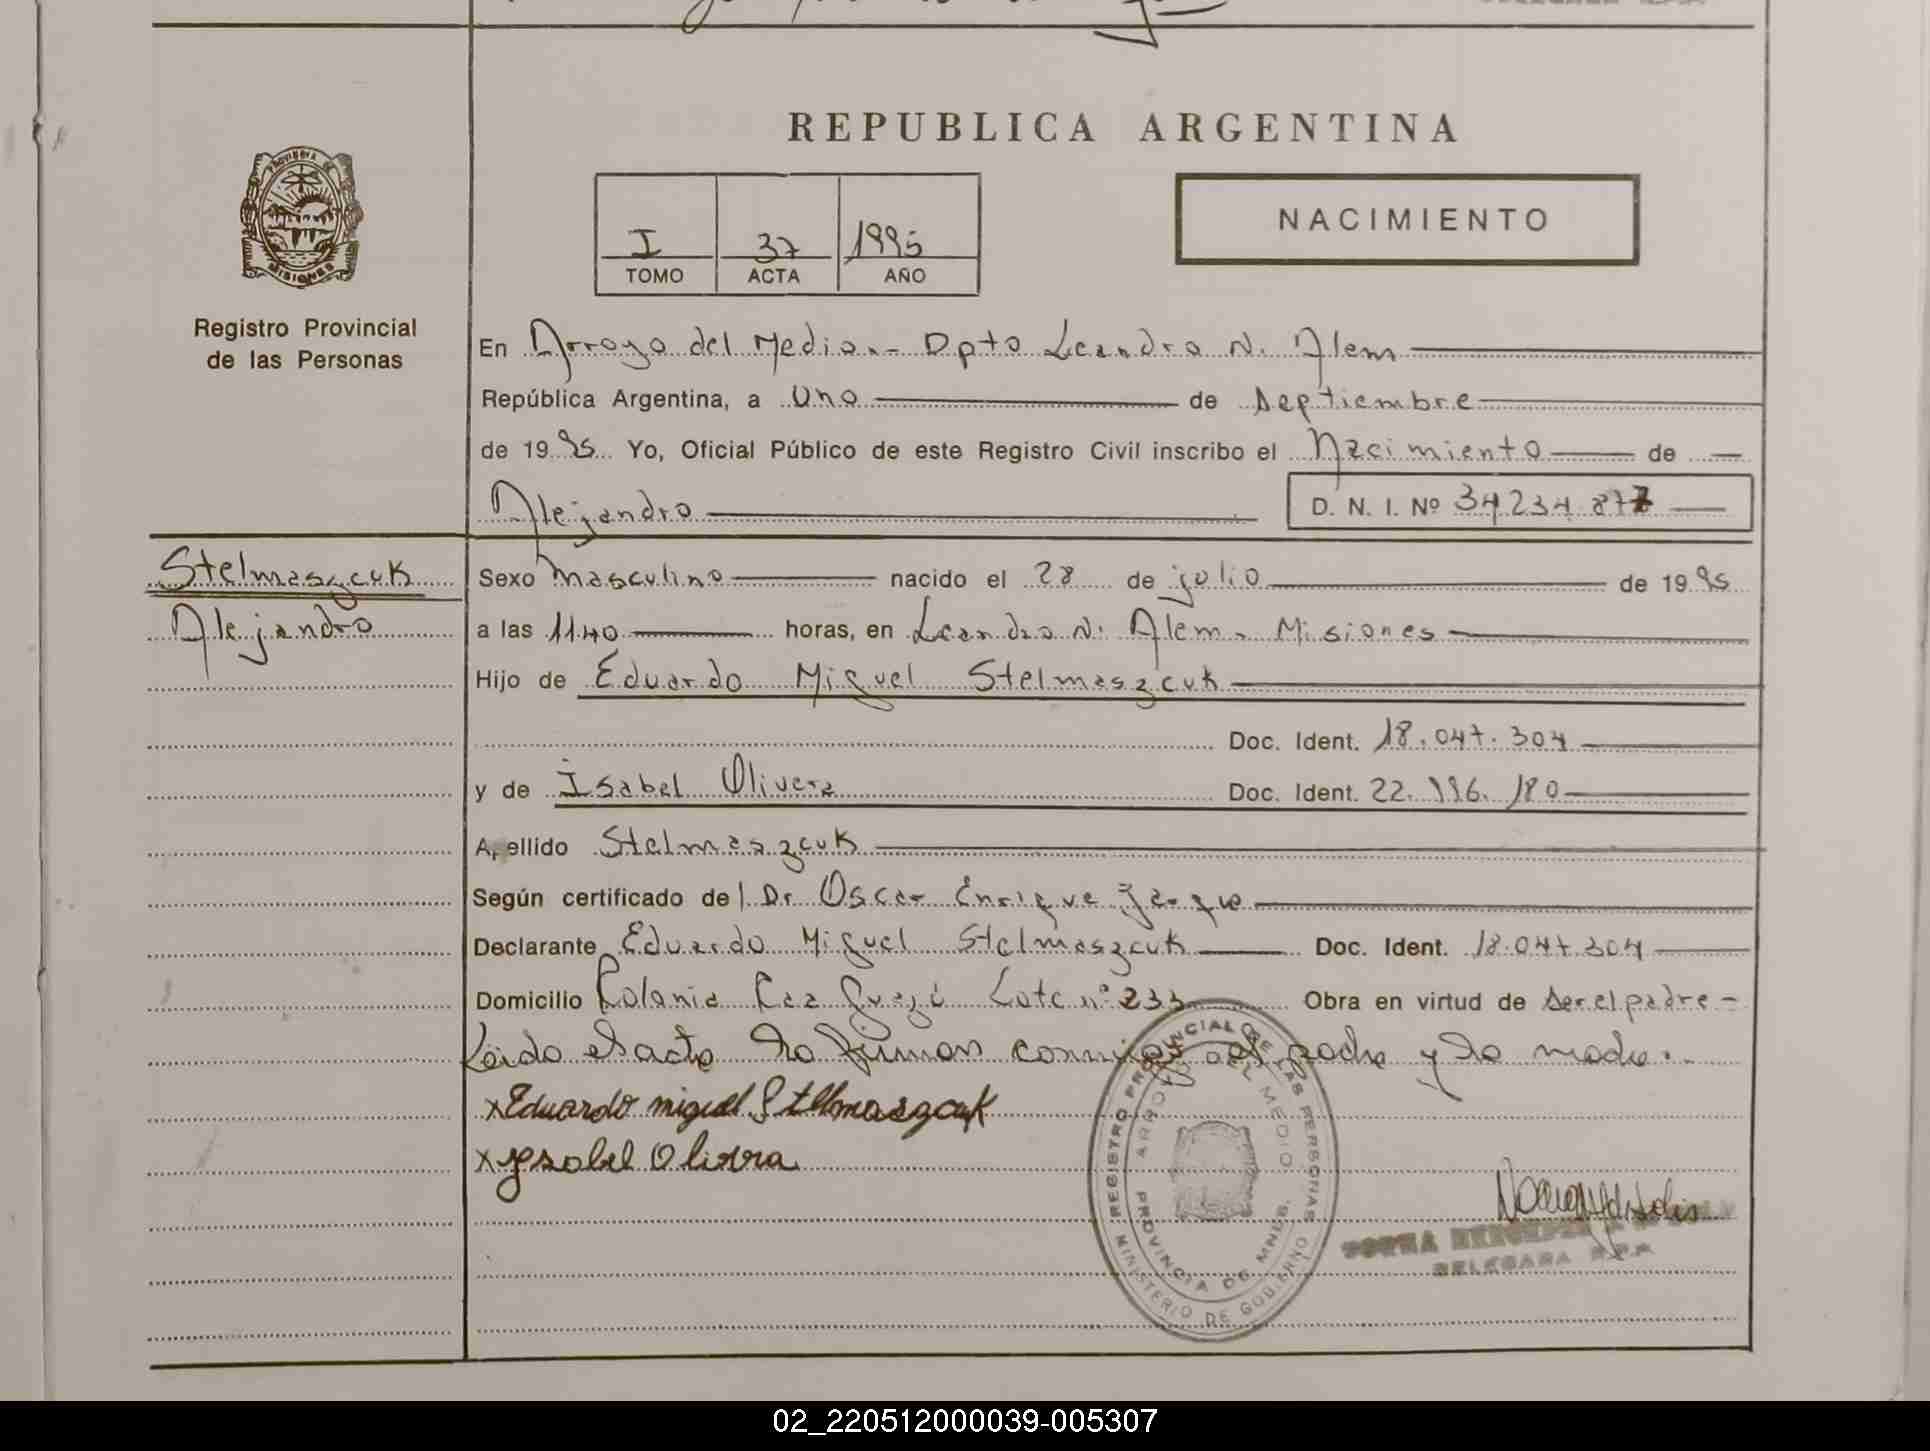 REPUBLICA ARGENTINA
PROVINCIA DE
MISIONES
Registro Provincial
de las Personas
I 37 1995
TOMO ACTA AÑO
NACIMIENTO
En Arroyo del Medio.- Dpto Leandro N. Alem
República Argentina, a Uno de Septiembre
de 1995 Yo, Oficial Público de este Registro Civil inscribo el Nacimiento de
Alejandro D. N. I. Nº 34.234.877
Stelmaszcuk
Alejandro
Sexo Masculino nacido el 28 de julio de 1995
a las 11.40 horas, en Leandro N. Alem - Misiones
Hijo de Eduardo Miguel Stelmaszcuk
Doc. Ident. 18.047.304
y de Isabel Olivera Doc. Ident. 22.996.180
Apellido Stelmaszcuk
Según certificado del Dr Oscar Enrique
Declarante Eduardo Miguel Stelmaszcuk Doc. Ident. 18.047.304
Domicilio Colonia Caa Guazú Lote nº 233 Obra en virtud de ser el padre -
Leido el acta la firman conmigo el padre y la madre.
x Eduardo miguel Stelmaszcuk
x Ysabel Olivera
REGISTRO PROVINCIAL DE LAS PERSONAS
MINISTERIO DE GOBIERNO
ARROYO DEL MEDIO
PROVINCIA DE MNES.
DELEGADA R.P.P.
02_220512000039-005307